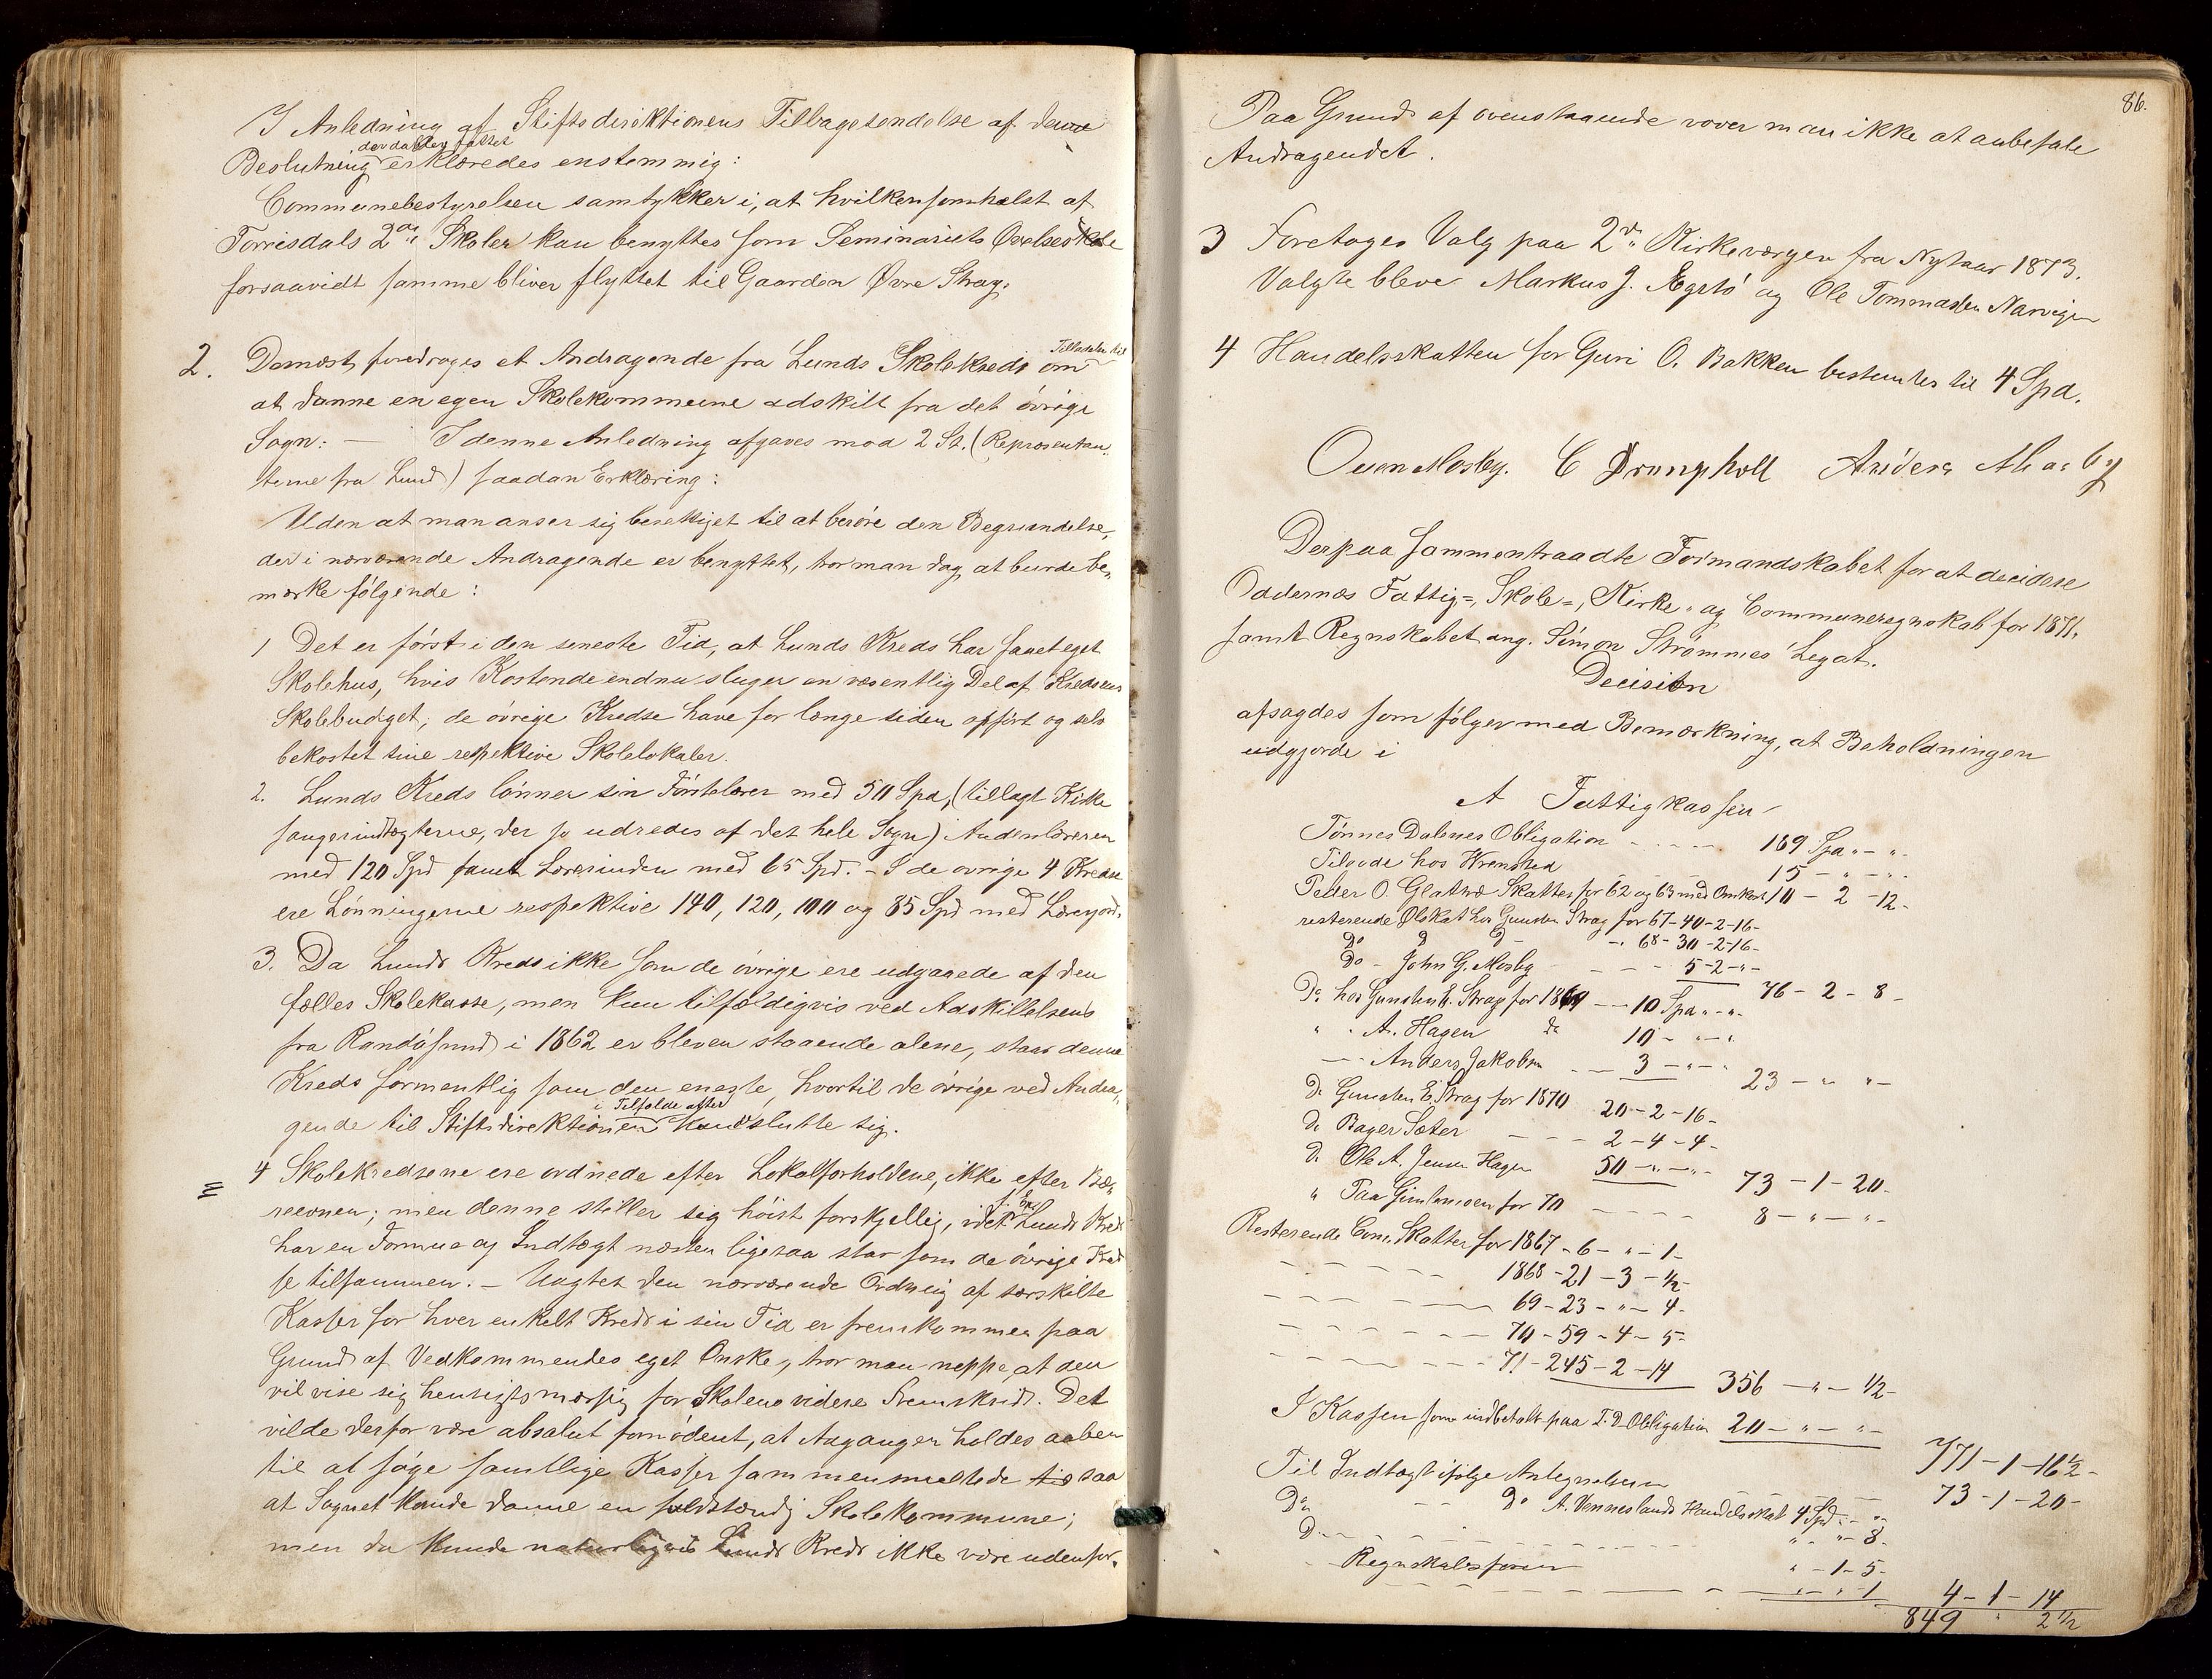 I Anledning af Stiftsdirektionens Tilbagesendelse af denne
Beslutning erklæredes enstemmig:
Communebestyrelsen samtykker i, at hvilkensomhelst af
Torrisdals 2de Skoler kan benyttes som Seminariets Øvelsesskole
forsaavidt samme bliver flyttet til Gaarden Øvre Strag.
2. Dernæst foredroges et Andragende fra Lunds Skolekreds om Tilladelse til
at danne en egen Skolekommune adskilt fra det övrige
Sogn: — I denne Anledning afgaves mod 2 St. (Repræsentan-
terne fra Lund) saadan Erklæring:
Uden at man anser sig berettiget til at beröre den Begrundelse,
der i nærværende Andragende er benyttet, tror man dog at burde be-
mærke følgende:
1 Det er först i den seneste Tid, at Lunds Kreds har faaet eget
Skolehus, hvis Kostende endnu sluger en væsentlig Del af Kredsens
Skolebudget; de övrige Kredse have for længe siden opfört og selv
bekostet sine respektive Skolelokaler.
2. Lunds Kreds lönner sin Förstelærer med 50 Spd, (tillagt Kirke
sangerindtægterne, der jo udredes af det hele Sogn) Andenlæreren
med 120 Spd samt Lærerinden med 65 Spd. - I de övrige 4 Kredse
ere Lönningerne respektive 140, 120, 100 og 85 Spd med Lærerjord.
3. Da Lunds Kreds ikke som de övrige ere udgaaede af den
fælles Skolekasse, men kun tilfældigvis ved Adskillelsen
fra Randösund i 1862 er bleven staaende alene, staar denne
Kreds formentlig som den eneste, hvortil de övrige ved Andra-
i Tilfælde efter
gende til Stiftsdirektionen kunde slutte sig.
4 Skolekredsene ere ordnede efter Lokalforholdene, ikke efter Bæ-
reevnen; men denne stiller sig höist forskjellig, idet f. Ex. Lunds Kreds
har en Formue og Indtægt næsten ligesaa stor som de övrige Kred
se tilsammen. - Uagtet den nærværende Ordning af særskilte
Kasser for hver enkelt Kreds i sin Tid er fremkommen paa
Grund af Vedkommendes eget Ønske, tror man neppe, at den
vil vise sig hensigtsmæssig for Skolens videre Fremskridt. Det
vilde derfor være absolut fornödent, at Adgangen holdes aaben
til at søge samtlige Kasser sammensmeltede saa
at Sognet kunde danne en fuldstændig Skolekommune;
men da kunde naturligvis Lunds Kreds ikke være udenfor.
86.
Paa Grund af ovenstaaende vover man ikke at anbefale
Andragendet.
3 Foretoges Valg paa 2de Kirkeværger fra Nytaar 1873.
Valgte bleve Markus J. Ægstö og Ole Tommassen Narvigen
4 Handelsskatten for Guri O. Bakken bestemtes til 4 Spd.
Ouen Mosby. C Drangholt Anders Aaby
Derpaa sammentraadte Formandskabet for at decidere
Oddernæs Fattig=, Skole=, Kirke- og Communeregnskab for 1871,
samt Regnskabet ang. Simon Strømmes Legat.
Decision
afsagdes som følger med Bemærkning, at Beholdningen
udgjorde i
A Fattigkassen
Tönnes Dalenes Obligation - - - - 189 Spd " - "
Tilgode hos 15 - " - "
Peder O. Skatter for 62 og 63 med Omkost. 10 - 2 - 12 -
resterende Ølskat hos Gunsten Strag for 67 - 40 - 2 - 16 -
Do D D - - 68 - 30 - 2 - 16 -
Do - John G. Mosby - - - 5 - 2 - " - 76 - 2 - 8 -
Do hos Gunsten E. Strag for 1869 - 10 Spd " - "
" - A. Hagen do 10 - " - "
- Anders Jakobsen - - 3 - " - " 23 - " - " -
Do Gunsten E. Strag for 1870 20 - 2 - 16 -
Do Bager Sæter - - - 2 - 4 - 4 -
Do Ole A. Jensen Hagen 50 - " - " 73 - 1 - 20 -
" Paa Gimlemoen for 70 - - - - 8 - " - " -
Resterende Com. Skatter for 1867 - 6 - " - 1 -
- - - - - 1868 - 21 - 3 - 1/2 -
- - - - - 69 - 23 - " - 4 -
- - - - - 70 - 59 - 4 - 5 -
- - - - - 71 - 245 - 2 - 14 356 - " - 1/2 -
I Kassen som indbetalt paa T. D. Obligation 20 - " - " -
771 - 1 - 16 1/2 -
Til Indtægt ifølge Antegnelsen - - - 73 - 1 - 20 -
Do - - Do A. Venneslands Handelsskat 4 Spd " - "
D - - - - - " - " - 8 -
Regnskabsføreren " - 1 - 5 -
- - - - - " - " - 1 4 - 1 - 14
849 " 2 1/2